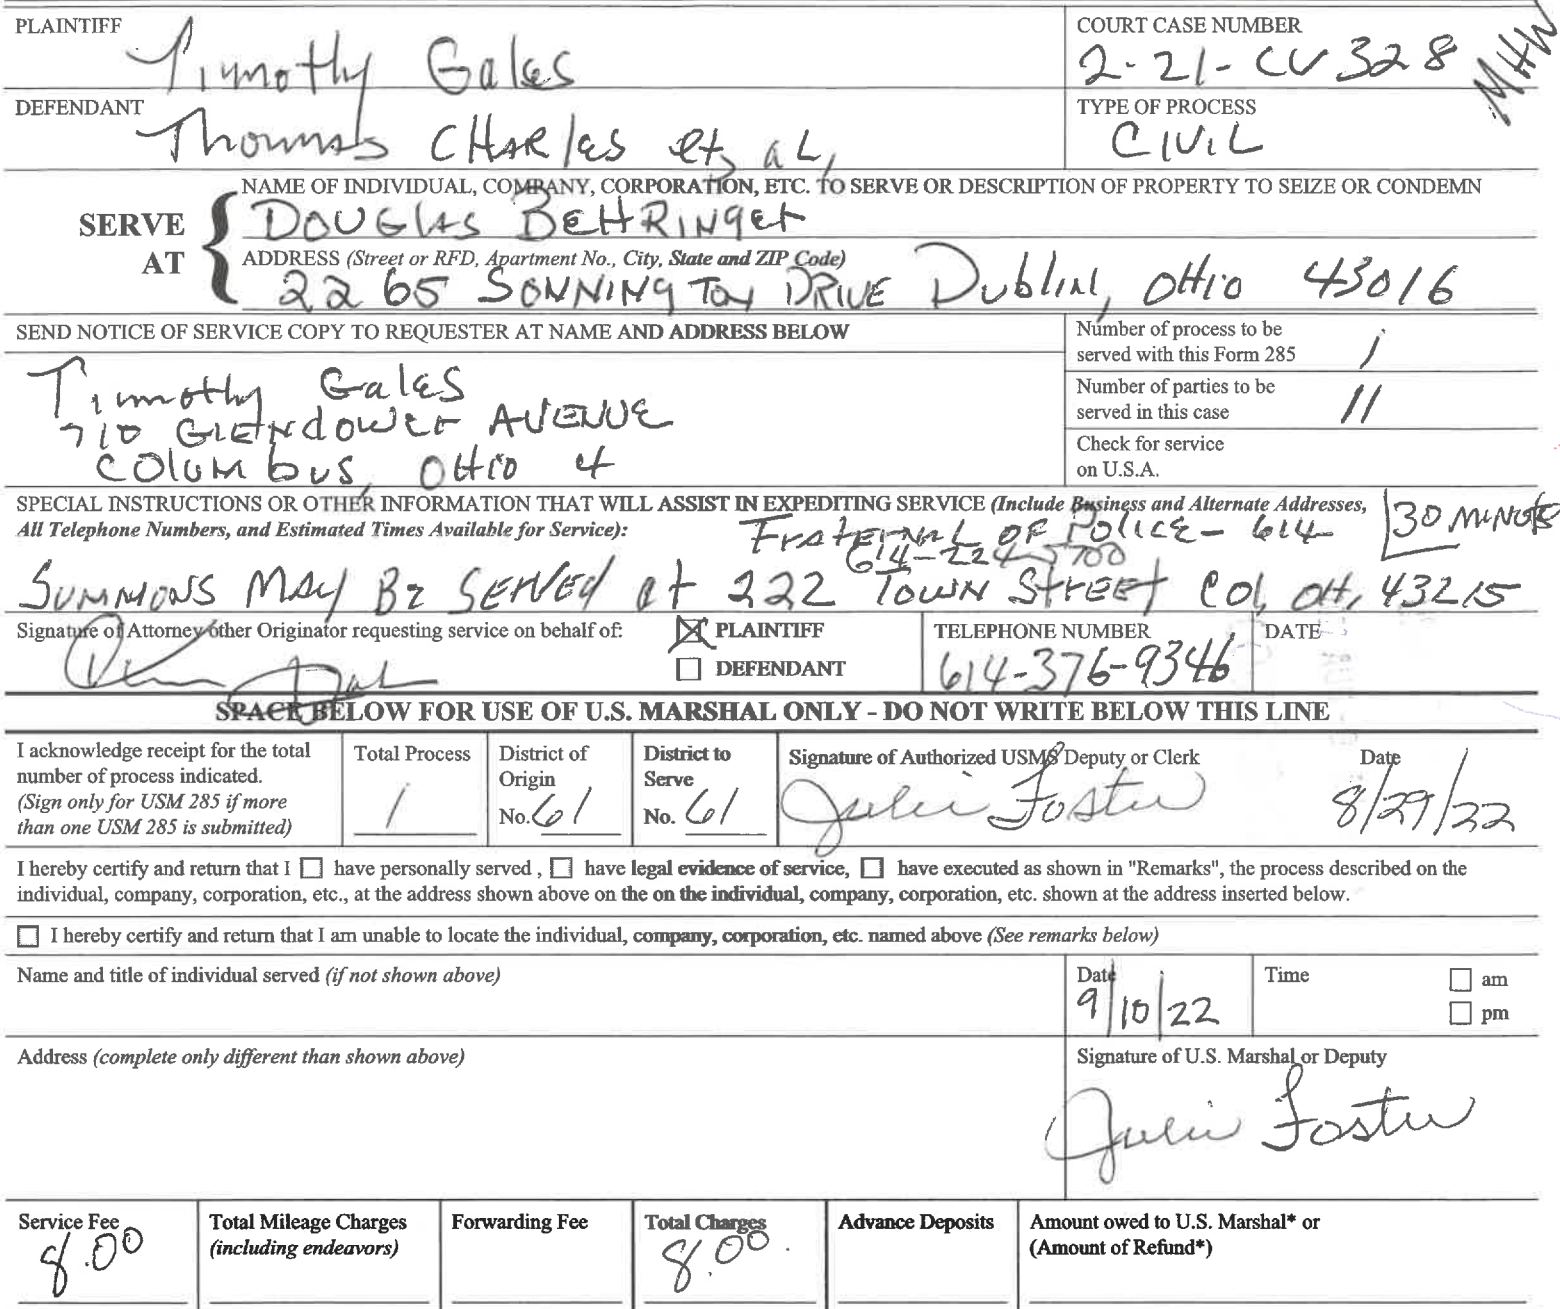 PLAINTIFF
Timothy Gales
COURT CASE NUMBER
2-21-CV 328
MHW
DEFENDANT
Thomas CHARles et, aL,
TYPE OF PROCESS
CIVIL
NAME OF INDIVIDUAL, COMPANY, CORPORATION, ETC. TO SERVE OR DESCRIPTION OF PROPERTY TO SEIZE OR CONDEMN
SERVE
AT
DOUGlAS BEHRINger
ADDRESS (Street or RFD, Apartment No., City, State and ZIP Code)
2265 SONNINGTON DRIVE Dublin, OHio 43016
SEND NOTICE OF SERVICE COPY TO REQUESTER AT NAME AND ADDRESS BELOW
Number of process to be
served with this Form 285
1
Timothy Gales
710 GlENdOWEr AVENUE
COlUMbUS, OHIO 4
Number of parties to be
served in this case
11
Check for service
on U.S.A.
SPECIAL INSTRUCTIONS OR OTHER INFORMATION THAT WILL ASSIST IN EXPEDITING SERVICE (Include Business and Alternate Addresses,
All Telephone Numbers, and Estimated Times Available for Service):
30 MiNutes
FraterNAL OF POLICE - 614-
614-224-5700
SUMMONS MAy BE SERVEd at 222 TOWN StrEEt COl, OH, 43215
Signature of Attorney other Originator requesting service on behalf of:
PLAINTIFF
DEFENDANT
TELEPHONE NUMBER
614-376-9346
DATE
SPACE BELOW FOR USE OF U.S. MARSHAL ONLY - DO NOT WRITE BELOW THIS LINE
I acknowledge receipt for the total
number of process indicated.
(Sign only for USM 285 if more
than one USM 285 is submitted)
Total Process
1
District of
Origin
No. 61
District to
Serve
No. 61
Signature of Authorized USMS Deputy or Clerk
Julie Foster
Date
8/29/22
I hereby certify and return that I have personally served , have legal evidence of service, have executed as shown in "Remarks", the process described on the
individual, company, corporation, etc., at the address shown above on the on the individual, company, corporation, etc. shown at the address inserted below.
I hereby certify and return that I am unable to locate the individual, company, corporation, etc. named above (See remarks below)
Name and title of individual served (if not shown above)
Date
9/10/22
Time
am
pm
Address (complete only different than shown above)
Signature of U.S. Marshal or Deputy
Julie Foster
Service Fee
8.00
Total Mileage Charges
(including endeavors)
Forwarding Fee
Total Charges
8.00
Advance Deposits
Amount owed to U.S. Marshal* or
(Amount of Refund*)